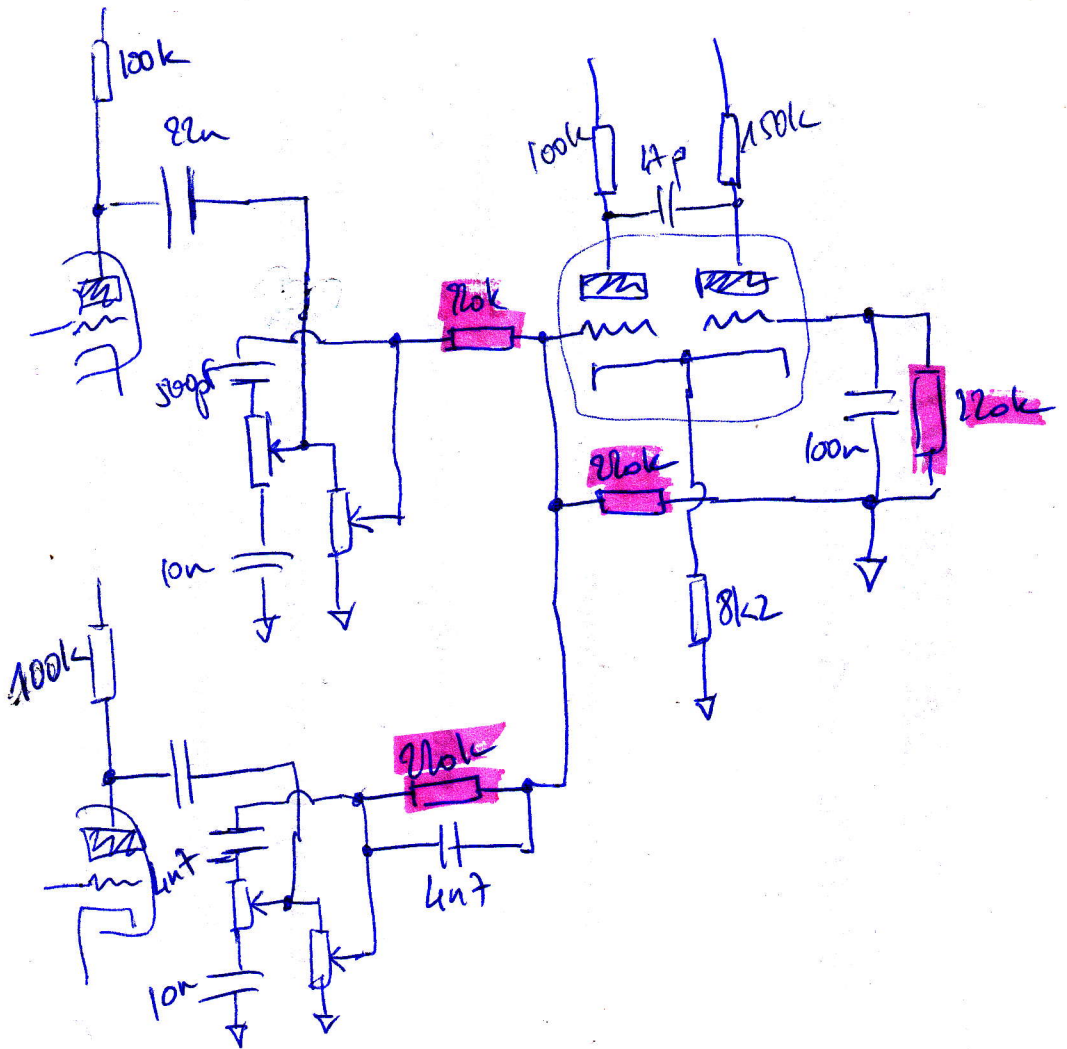 100k
22n
100k
47p
150k
220k
500pf
220k
220k
100n
10n
8k2
100k
220k
4n7
4n7
10n